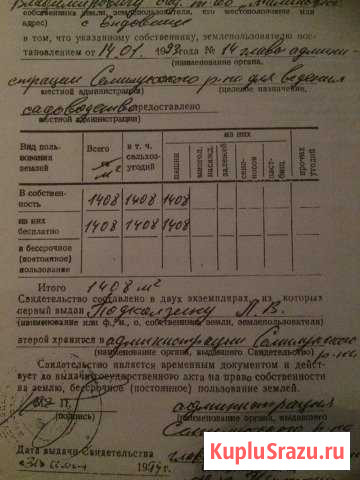 собственника земли, землепользователя, его местоположение или
адрес) с. Ендовище
в том, что указанному собственнику, землепользователю пос-
тановлением от 14.01. 1993 года № 14 глава админи-
(наименование органа,
страции Семилукского р-на для ведения
местной администрации) (целевое назначение,
садоводства предоставлено
местной администрации)
Вид поль-
зования
землей
Всего
м²
в т. ч.
сельхоз-
угодий
из них
пашни
многол.
насажд.
залежей
сено-
косов
паст-
бищ
прочих
угодий
В собствен-
ность 1408 1408 1408
из них
бесплатно 1408 1408 1408
в бессрочное
(постоянное)
пользование
Итого 1408 м²
Свидетельство составлено в двух экземплярах, из которых
первый выдан Л. В.
(наименование или ф., и., о. собственника земли, землепользователя)
второй хранится в администрации Семилукского
р-на
(наименование органа, выдавшего Свидетельство)
Свидетельство является временным документом и дейст-
вует до выдачи государственного акта на право собственности
на землю, бессрочное (постоянное) пользование землей.
М. П. администрация
(подпись) (наименование органа, выдавшего
Семилукского р-на
Дата выдачи Свидетельства
1994г.
KupluSrazu.ru